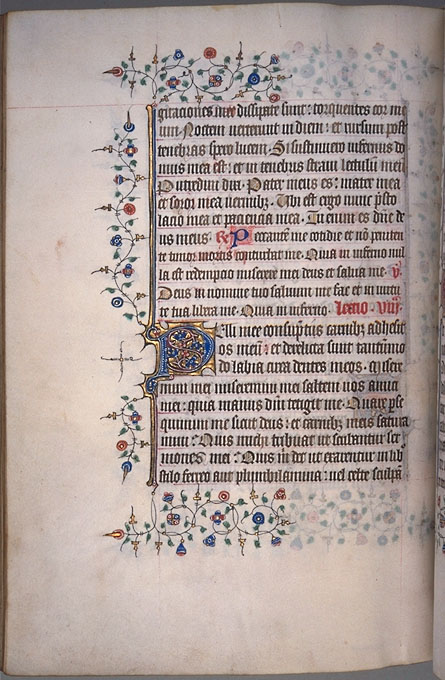 gitaciones mee dissipate sunt: torquentes cor me
um. Noctem verterunt in diem: et rursum post
tenebras spero lucem. Si sustinuero infernus do
mus mea est: et in tenebris stravi lectulum meū
Putredini dixi. Pater meus es: mater mea
et soror mea vermibꝫ. Ubi est ergo nunc p̄sto
lacio mea et paciencia mea. Tu enim es dn̄e de
us meus. R̄ Peccantem me cotidie et nō peniten
te timor mortis cōturbat me. Quia in inferno nul
la est redempcio miserere mei deus et salva me. v̄
Deus in nomine tuo salvum me fac et in virtu
te tua libera me. Quia in inferno. Lectio. viij.
Pelli mee consumptis carnibꝫ adhesit
os meū: et derelicta sunt tantūmo
do labia circa dentes meos. Misere
mini mei miseremini mei saltem vos amici
mei: quia manus dn̄i tetigit me. Quare p̄se
quimini me sicut deus: et carnibꝫ meis satura
mini: Quis michi tribuat ut scribantur ser
mones mei: Quis m̄ det ut exarentur in lib
stilo ferreo aut plumbi lamina: vel celte sculpā